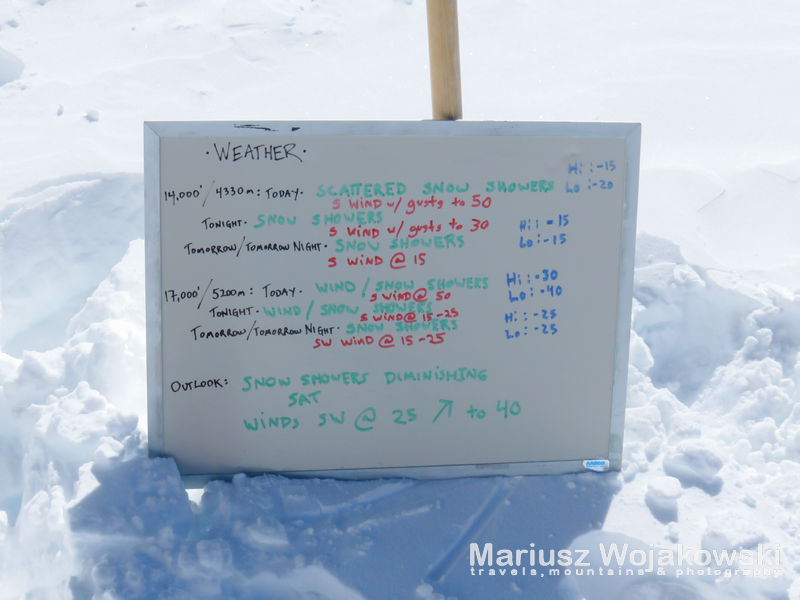 · WEATHER ·
Hi: -15
14,000'/4330m: TODAY. SCATTERED SNOW SHOWERS Lo: -20
S WIND w/ gusts to 50
TONIGHT. SNOW SHOWERS
S WIND w/ gusts to 30 Hi: -15
TOMORROW/TOMORROW NIGHT. SNOW SHOWERS Lo: -15
S WIND @ 15
17,000'/5200m: TODAY. WIND/SNOW SHOWERS Hi: -30
S WIND @ 50 Lo: -40
TONIGHT. WIND/SNOW SHOWERS
S WIND @ 15-25 Hi: -25
TOMORROW/TOMORROW NIGHT. SNOW SHOWERS Lo: -25
SW WIND @ 15-25
OUTLOOK: SNOW SHOWERS DIMINISHING
SAT
WINDS SW @ 25 ↗ to 40
Mariusz Wojakowski
travels, mountains & photography